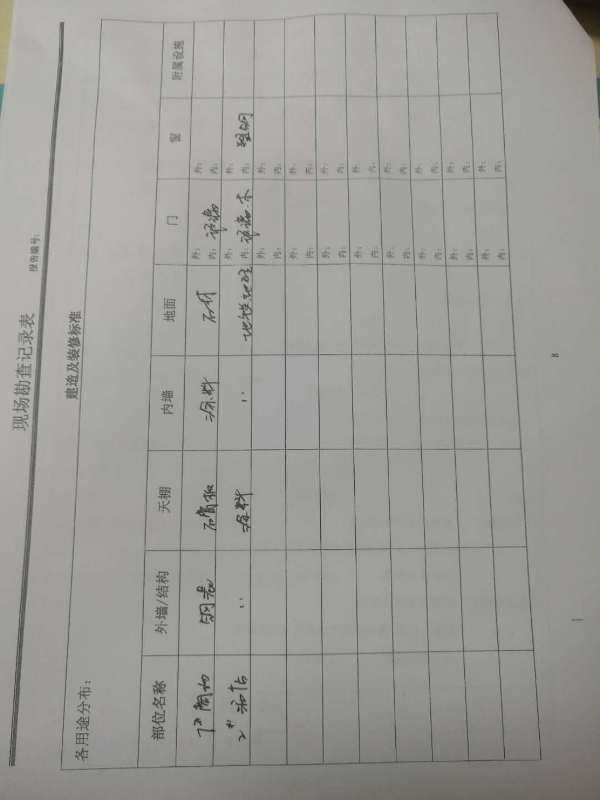 现场勘查记录表
报告编号:
建造及装修标准
各用途分布:
部位名称 外墙/结构 天棚 内墙 地面 门 窗 附属设施
石膏板 涂料 石材 外: 内: 外: 内:
〃 涂料 〃 外: 内: 木 外: 内: 塑钢
外: 内: 外: 内:
外: 内: 外: 内:
外: 内: 外: 内:
外: 内: 外: 内:
外: 内: 外: 内:
外: 内: 外: 内:
外: 内: 外: 内:
外: 内: 外: 内:
8